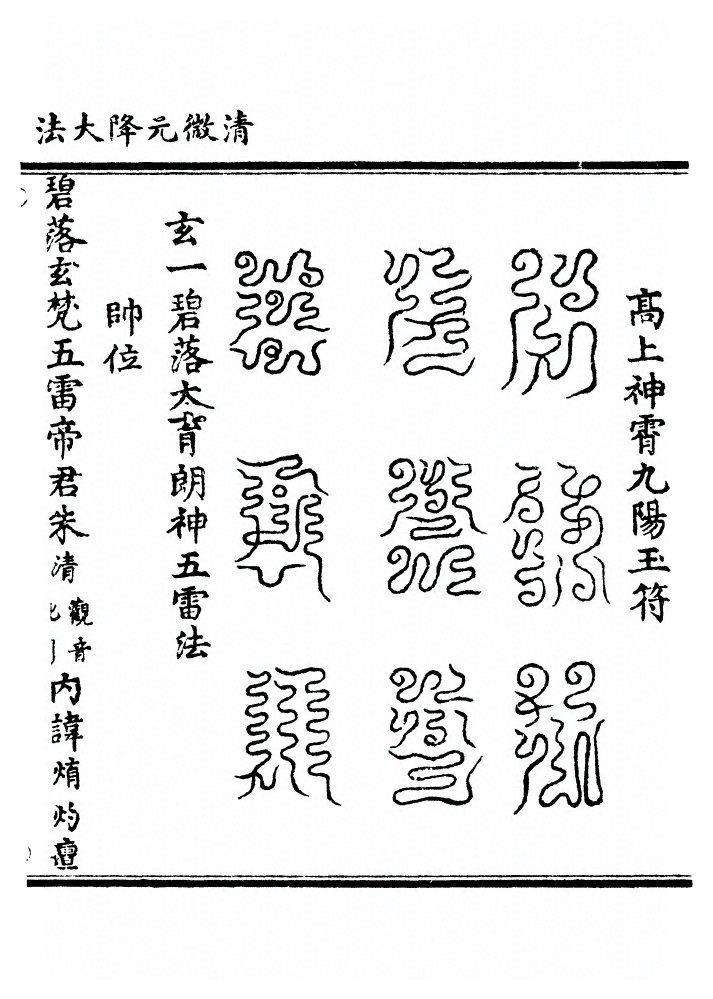 清微元降大法
高上神霄九陽玉符
玄一碧落太育朗神五雷法
帥位
碧落玄梵五雷帝君朱清觀音內諱焴灼䨴